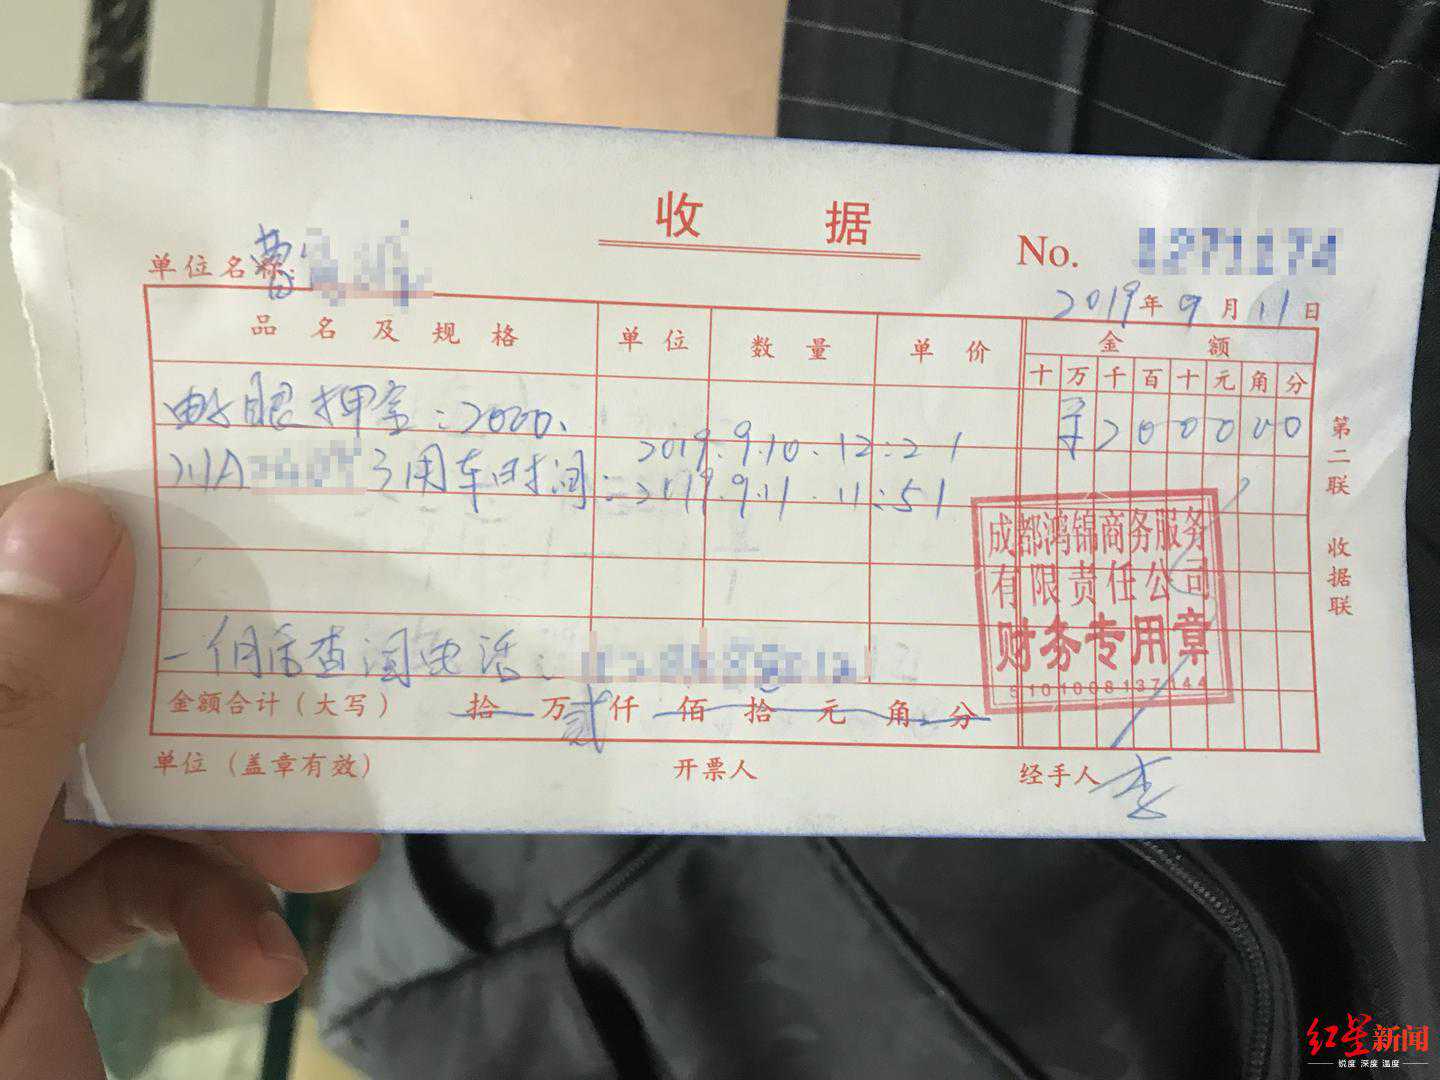 收 据
No.
单位名称: 曹
2019年9月11日
品名及规格 单位 数量 单价 金额
十 万 千 百 十 元 角 分
押金:2000、 ¥200000
2019.9.10.12:21
川A 用车时间: 2019.9.11.11:51
成都鸿锦商务服务
有限责任公司
财务专用章
5101008137144
一个月后查询电话:
金额合计(大写) 拾 万 贰 仟 佰 拾 元 角 分
单位(盖章有效) 开票人 经手人 李
第二联 收据联
红星新闻
锐度 深度 温度